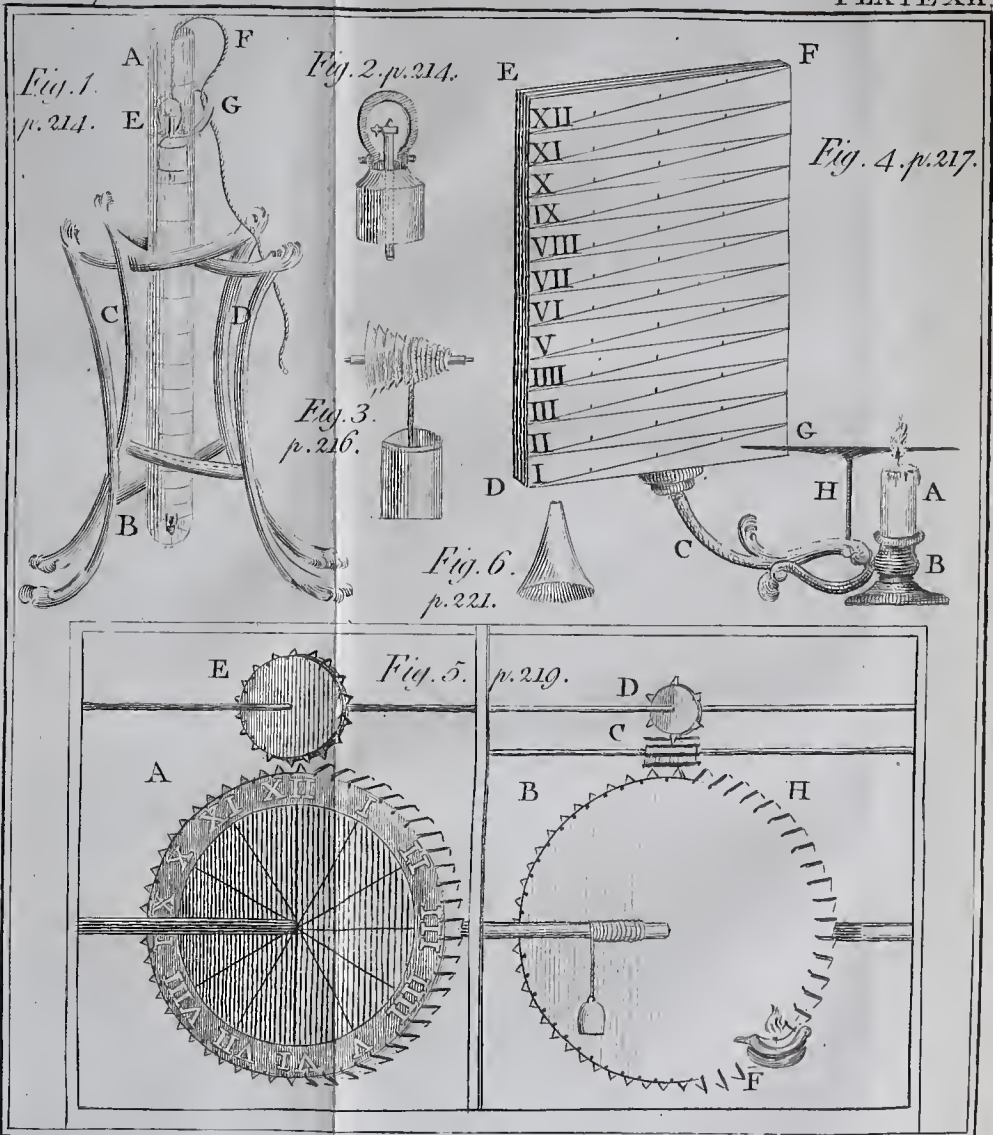 PLATE XII.
A
F
Fig. 1.
p. 214.
E
G
C
D
B
Fig. 2. p. 214.
Fig. 3.
p. 216.
E
F
XII
XI
X
IX
VIII
VII
VI
V
IIII
III
II
I
D
Fig. 4. p. 217.
G
H
A
C
B
Fig. 6.
p. 221.
Fig. 5. p. 219.
E
A
XII
I
II
III
IIII
V
VI
VII
VIII
X
XI
D
C
B
H
F